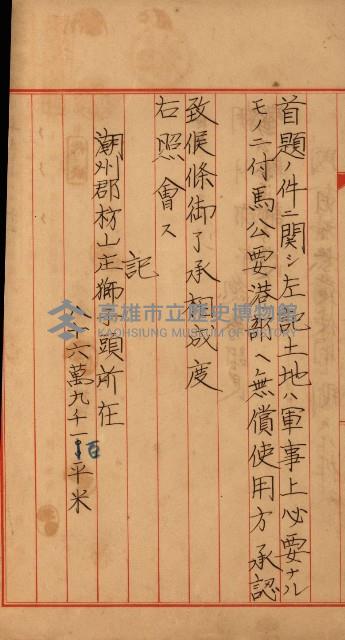 首題ノ件ニ関シ左記土地ハ軍事上必要ナル
モノニ付馬公要港部ヘ無償使用方承認
致候條御了承相成度
右照會ス
記
潮州郡枋山庄獅子頭所在
八十六萬九千一百平米
高雄市立歷史博物館
KAOHSIUNG MUSEUM OF HISTORY